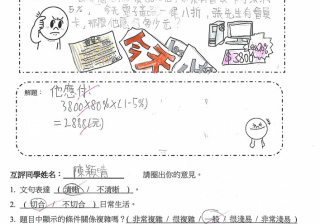 5%,今天電器一律八折,張先生有會員
卡,那麼他應付多少元?
今天
$3800
解題:
他應付
3800×80%×(1-5%)
=2888(元)
互評同學姓名: 陳穎晴 請圈出你的意見。
1. 文句表達(清晰 / 不清晰)。
2.(切合 / 不切合)日常生活。
3. 題目中顯示的條件關係複雜嗎?(非常複雜 / 很複雜 / 一般 / 很淺易 / 非常淺易)